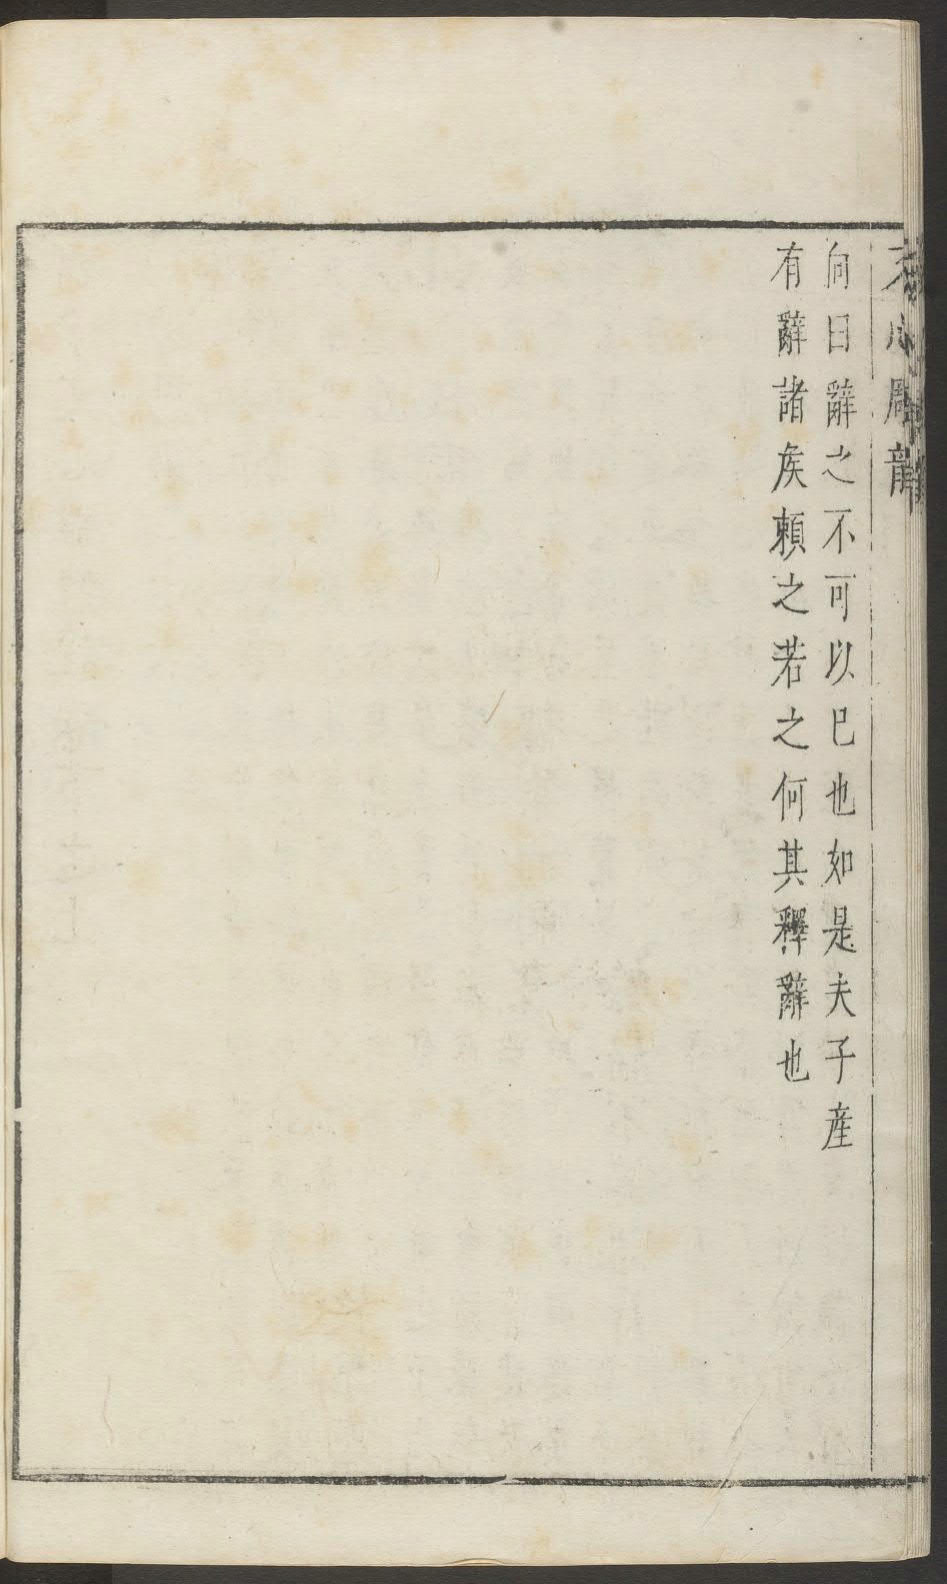 向曰辭之不可以已也如是夫子産
有辭諸矦頼之若之何其釋辭也
文心雕龍